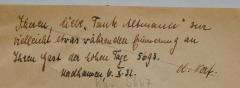 Ihnen, liebe "Tante Altmann" zur
vielleicht etwas währenden Erinnerung an
Ihren Gast der hohen Tage 5693.
Nordhausen 6. X. 32.